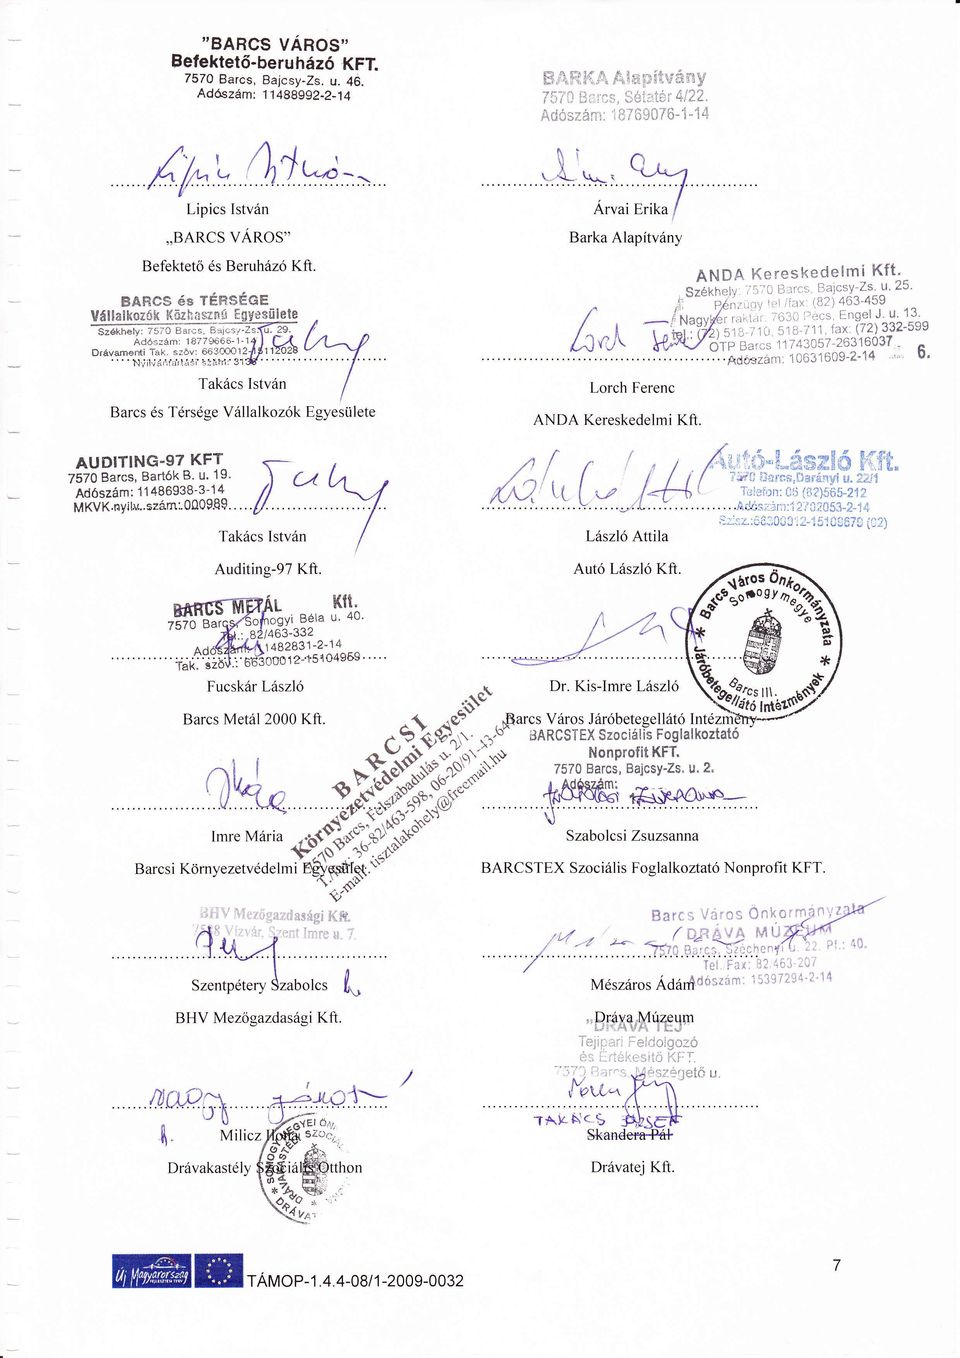 "BARCS VÁROS"
Befektető-beruházó KFT.
7570 Barcs, Bajcsy-Zs. u. 46.
Adószám: 11488992-2-14
Lipics István
„BARCS VÁROS”
Befektető és Beruházó Kft.
BARKA Alapítvány
7570 Barcs, Sétatér 4/22.
Adószám: 18769076-1-14
Árvai Erika
Barka Alapítvány
BARCS és TÉRSÉGE
Vállalkozók Közhasznú Egyesülete
Székhely: 7570 Barcs, Bajcsy-Zs. u. 29.
Adószám: 18779666-1-14
Drávamenti Tak. szöv: 66300012-15112028
Nyilvántartási szám: 3136
Takács István
Barcs és Térsége Vállalkozók Egyesülete
ANDA Kereskedelmi Kft.
Székhely: 7570 Barcs, Bajcsy-Zs. u. 25.
Pénzügy tel/fax: (82) 463-459
Nagyker raktár: 7630 Pécs, Engel J. u. 13.
Tel.: (72) 518-710, 518-711, fax: (72) 332-599
OTP Barcs 11743057-26316037
Adószám: 10631609-2-14 6.
Lord Ferenc
Lorch Ferenc
ANDA Kereskedelmi Kft.
AUDITING-97 KFT
7570 Barcs, Bartók B. u. 19.
Adószám: 11486938-3-14
MKVK.nyilv..szám:.000989
Takács István
Auditing-97 Kft.
Autó-László Kft.
7570 Barcs, Darányi u. 22/1
Telefon: 06 (82)565-212
Adószám:12702053-2-14
László Attila
Autó László Kft.
BARCS METÁL Kft.
7570 Barcs, Somogyi Béla u. 40.
Tel.: 82/463-332
Adószám: 11482831-2-14
Tak. szöv.: 66300012-15104959
Fucskár László
Barcs Metál 2000 Kft.
Barcs Város Önkormányzata
Somogy megye
Járóbetegellátó Intézmények
Barcs III.
Dr. Kis-Imre László
Barcs Város Járóbetegellátó Intézmény
BARCSI
Környezetvédelmi Egyesület
7570 Barcs, Felszabadulás u. 2/1.
T./fax: 36-82/463-598, 06-20/91-43-64
E-mail: tisztalakohely@freemail.hu
Imre Mária
Barcsi Környezetvédelmi Egyesület
BARCSTEX Szociális Foglalkoztató
Nonprofit KFT.
7570 Barcs, Bajcsy-Zs. u. 2.
Adószám:
Szabolcsi Zsuzsanna
BARCSTEX Szociális Foglalkoztató Nonprofit KFT.
BHV Mezőgazdasági Kft.
7588 Vízvár, Szent Imre u. 7.
Szentpétery Szabolcs
BHV Mezögazdasági Kft.
Barcs Város Önkormányzata
DRÁVA MÚZEUM
7570 Barcs, Széchenyi u. 22. Pf.: 40.
Tel./Fax: 82/463-207
Adószám: 15397294-2-14
Mészáros Ádám
Dráva Múzeum
„DRÁVA TEJ”
Tejipari Feldolgozó
és Értékesítő KFT.
7570 Barcs, Mészégető u.
Milicz Ilona
Drávakastély Szociális Otthon
TAKÁCS JÓZSEF
Skandera Pál
Drávatej Kft.
Új Magyarország
TÁMOP-1.4.4-08/1-2009-0032
7